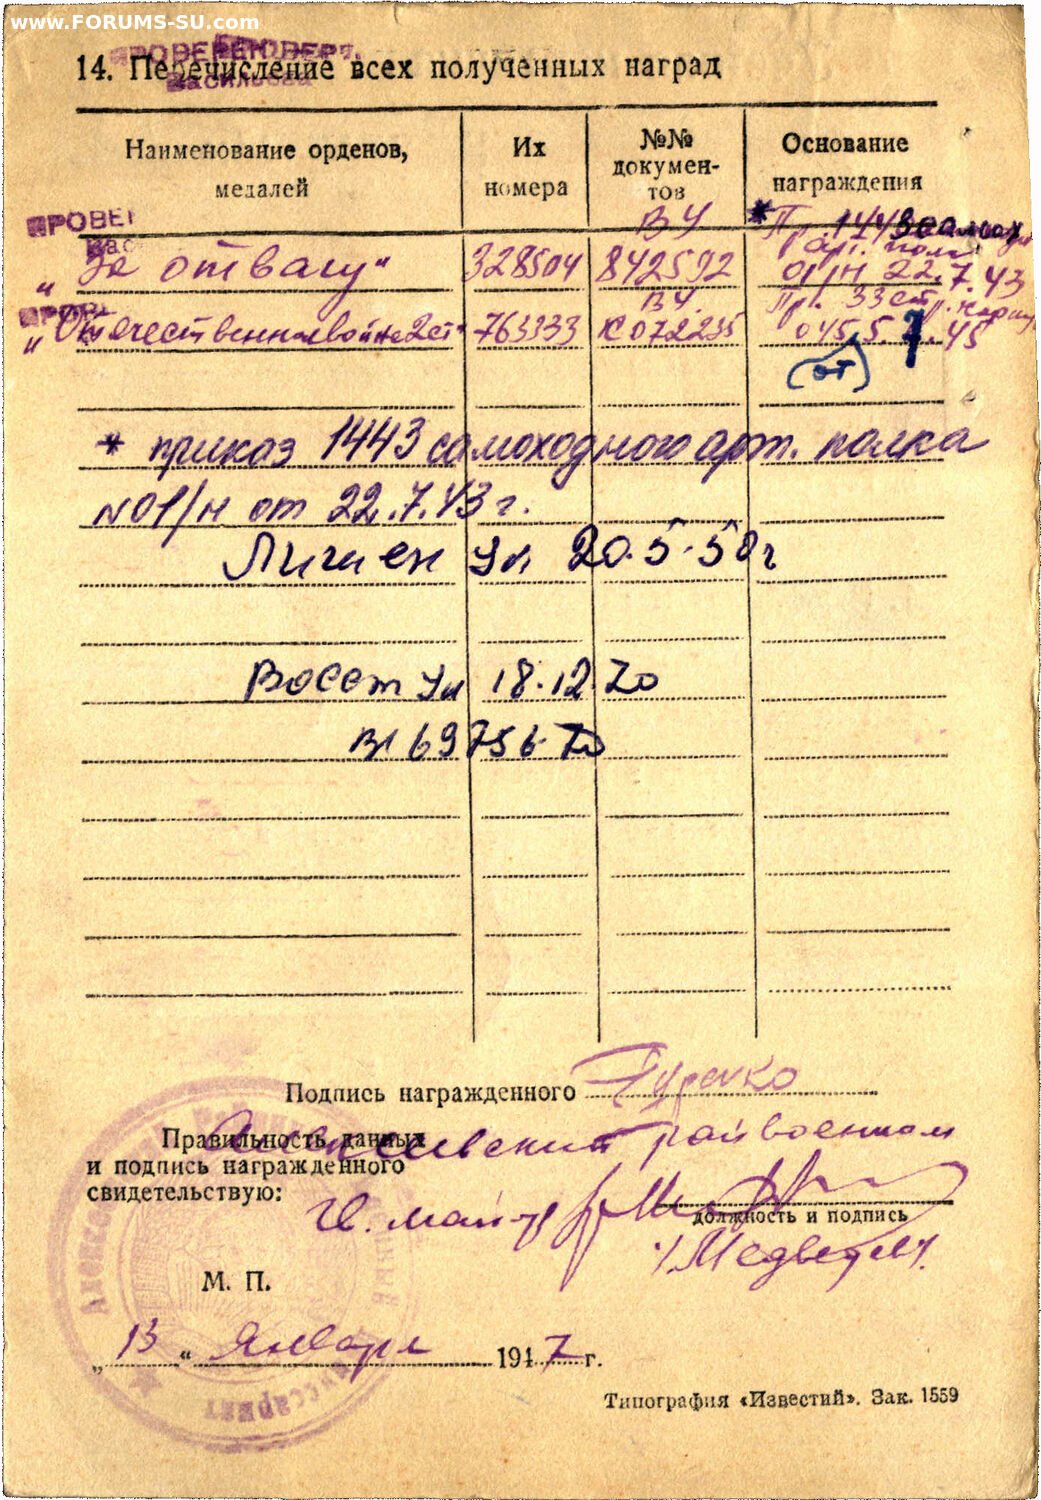 www.FORUMS-SU.com
14. Перечисление всех полученных наград
Наименование орденов, медалей
Их номера
№№ документов
Основание награждения
ПРОВЕР
ВЧ
* Пр. 1443 самоход
арт. полк
„За отвагу“ 328504 842592 01/н 22.7.43
ВЧ Пр. 33 ст
„Отечественной войны 2 ст“ 763333 К 072235 045 5.7.45
(от)
* приказ 1443 самоходного арт. полка
№ 01/н от 22.7.43 г.
Лишен Ук 20.5.50 г
Восст Ук 18.12.70
Вх 69756-70
Подпись награжденного Гуренко
Правильность данных
и подпись награжденного
свидетельствую:
райвоенком
Гв. майор
должность и подпись
/Медведев/.
М. П.
„13“ Января 1947 г.
Типография «Известий». Зак. 1559